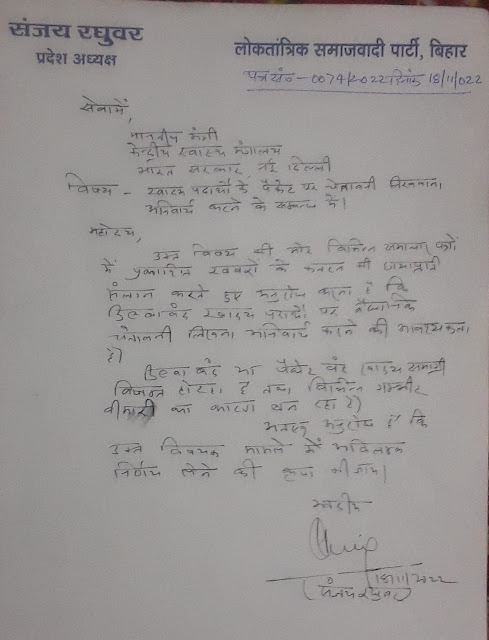 संजय रघुवर
प्रदेश अध्यक्ष
लोकतांत्रिक समाजवादी पार्टी, बिहार
पत्र सं०-0074/2022 दिनांक 18/11/022
सेवा में,
माननीय मंत्री
केन्द्रीय स्वास्थ्य मंत्रालय
भारत सरकार, नई दिल्ली
विषय - खाद्य पदार्थों के पैकेट पर चेतावनी लिखना
अनिवार्य करने के सम्बन्ध में।
महोदय,
उक्त विषय की ओर विभिन्न समाचार पत्रों
में प्रकाशित खबरों के की
संलग्न करते हुए अनुरोध करना है कि
डिब्बा बंद खाद्य पदार्थों पर वैधानिक
चेतावनी लिखना अनिवार्य करने की आवश्यकता
है।
डिब्बा बंद या पैकेट बंद खाद्य सामग्री
होता है तथा विभिन्न गम्भीर
बीमारी का कारण बन रहा है।
अतएव अनुरोध है कि
उक्त विषयक मामले में अविलम्ब
निर्णय लेने की कृपा की जाय।
भवदीय
18/11/2022
(संजय रघुवर)